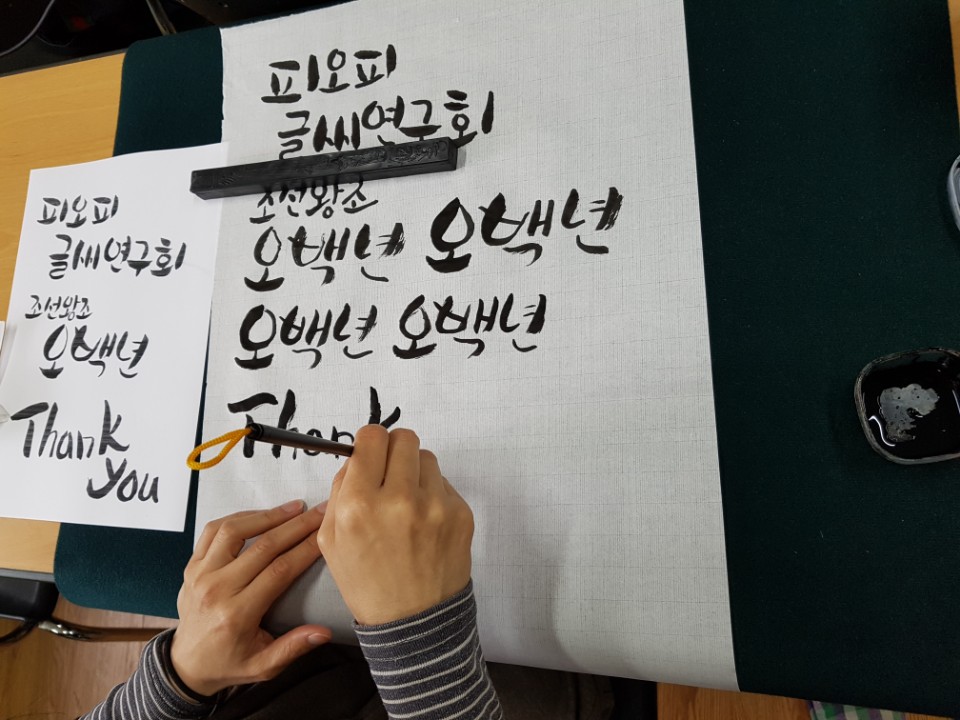 피오피
글씨연구회
조선왕조
오백년
Thank
you
피오피
글씨연구회
조선왕조
오백년 오백년
오백년 오백년
Thank